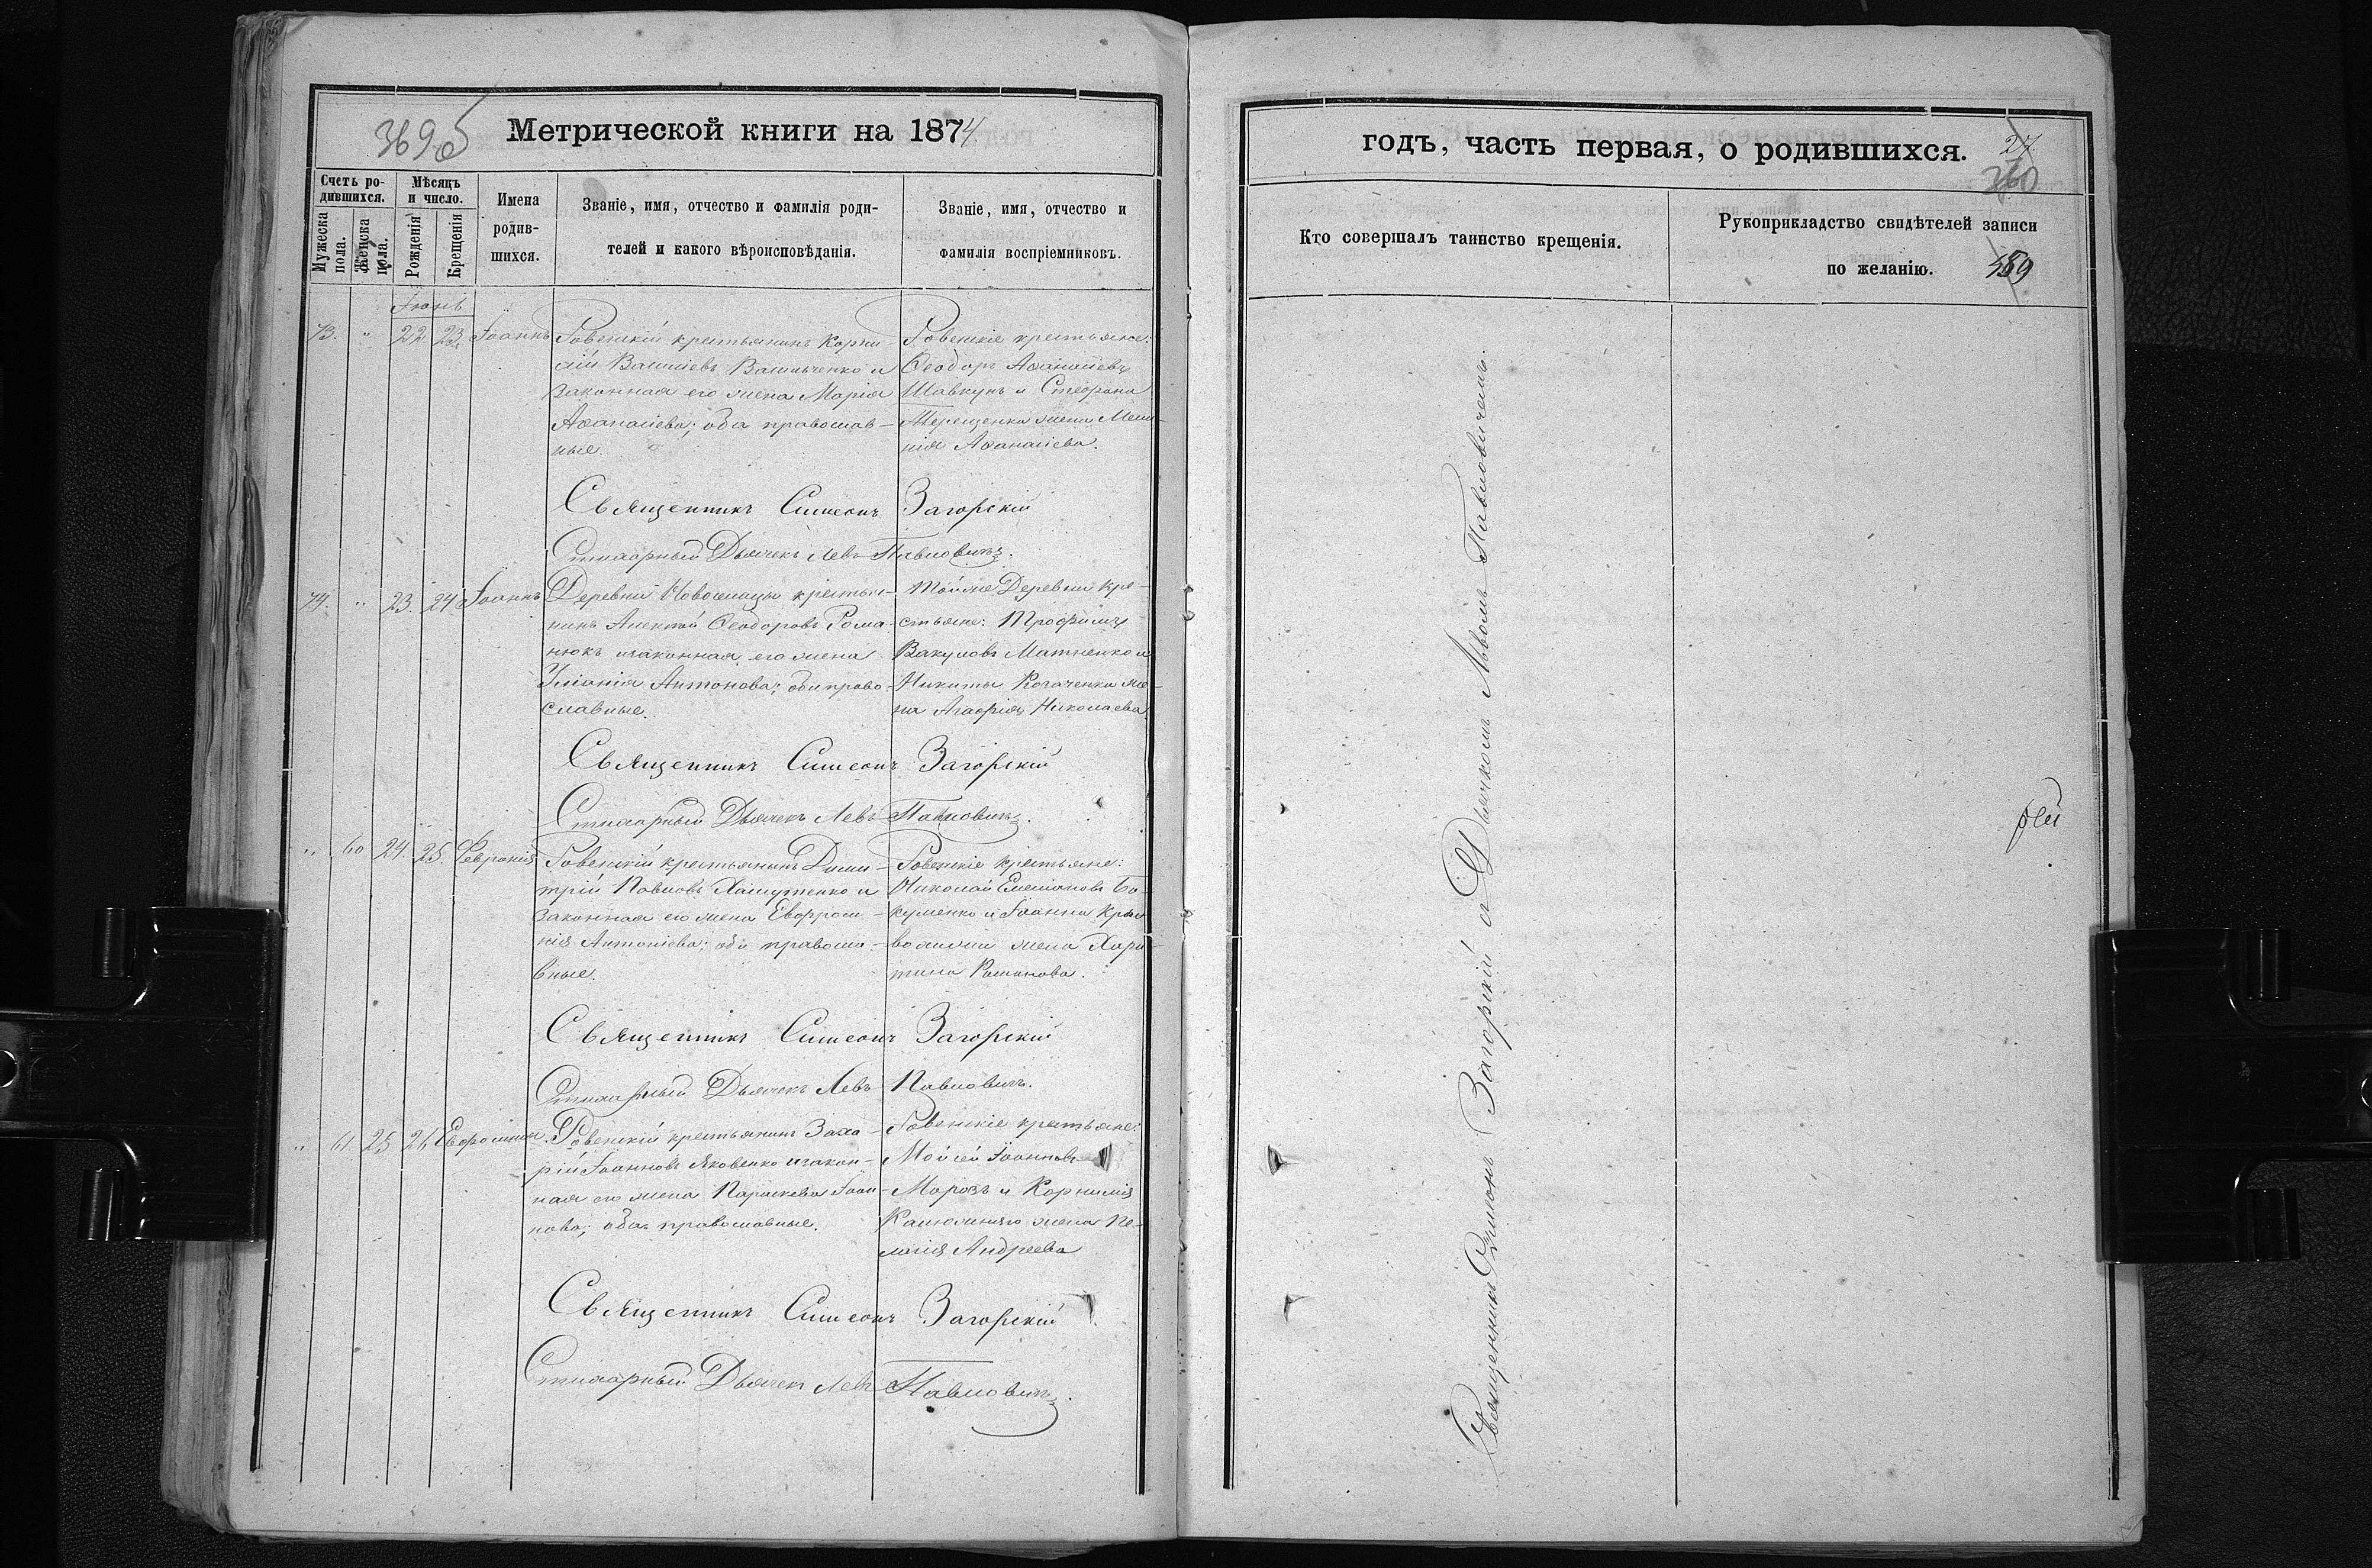 369 об
Метрической книги на 1874
Счетъ ро-
дившихся.
Мѣсяцъ
и число.
Мужеска
пола.
Женска
пола.
Рожденія
Крещенія
Имена
родив-
шихся.
Званіе, имя, отчество и фамилія роди-
телей и какого вѣроисповѣданія.
Званіе, имя, отчество и
фамилія воспріемниковъ.
Іюнь
73. " 22 23. Іоаннъ
Ровенскій крестьянинъ Корни-
лій Василіевъ Васильченко и
законная его жена Марія
Аѳанасіева; оба православ-
ные.
Ровенскіе крестьяне:
Ѳеодоръ Аѳанасіевъ
Шавкунъ и Стефана
Терещенка жена Мела-
нія Аѳанасіева.
Священникъ Симеонъ Загорскій
Стихарный Дьячекъ Левъ Павловичъ.
74. " 23. 24 Іоаннъ
Деревни Новоселицы крестья-
нинъ Алексѣй Ѳеодоровъ Рома-
нюкъ и законная его жена
Уліанія Антонова; оба право-
славные.
Той же Деревни кре-
стьяне: Трофимъ
Вакуловъ Матненко и
Никиты Косаченка же-
на Агафія Николаева.
Священникъ Симеонъ Загорскій
Стихарный Дьячекъ Левъ Павловичъ.
" 60 24. 25. Февронія
Ровенскій крестьянинъ Дими-
трій Павловъ Хамутенко и
законная его жена Евфроси-
нія Антоніева; оба правосла-
вные.
Ровенскіе крестьяне:
Николай Емеліановъ Ба-
куменко и Іоанна Кри-
жена Хари-
тина Романова.
Священникъ Симеонъ Загорскій
Стихарный Дьячекъ Левъ Павловичъ.
" 61. 25 26 Евфросинія.
Ровенскій крестьянинъ Заха-
рій Іоанновъ Яковенко и закон-
ная его жена Параскева Іоан-
нова; оба православные.
Ровенскіе крестьяне:
Мойсей Іоанновъ
Морозъ и Корнилія
жена Пе-
лагія Андреева
Священникъ Симеонъ Загорскій
Стихарный Дьячекъ Левъ Павловичъ.
годъ, часть первая, о родившихся.
27
370
Кто совершалъ таинство крещенія.
Рукоприкладство свидѣтелей записи
по желанію.
489
Священникъ Симеонъ Загорскій съ Дьячкомъ Львомъ Павловичемъ.